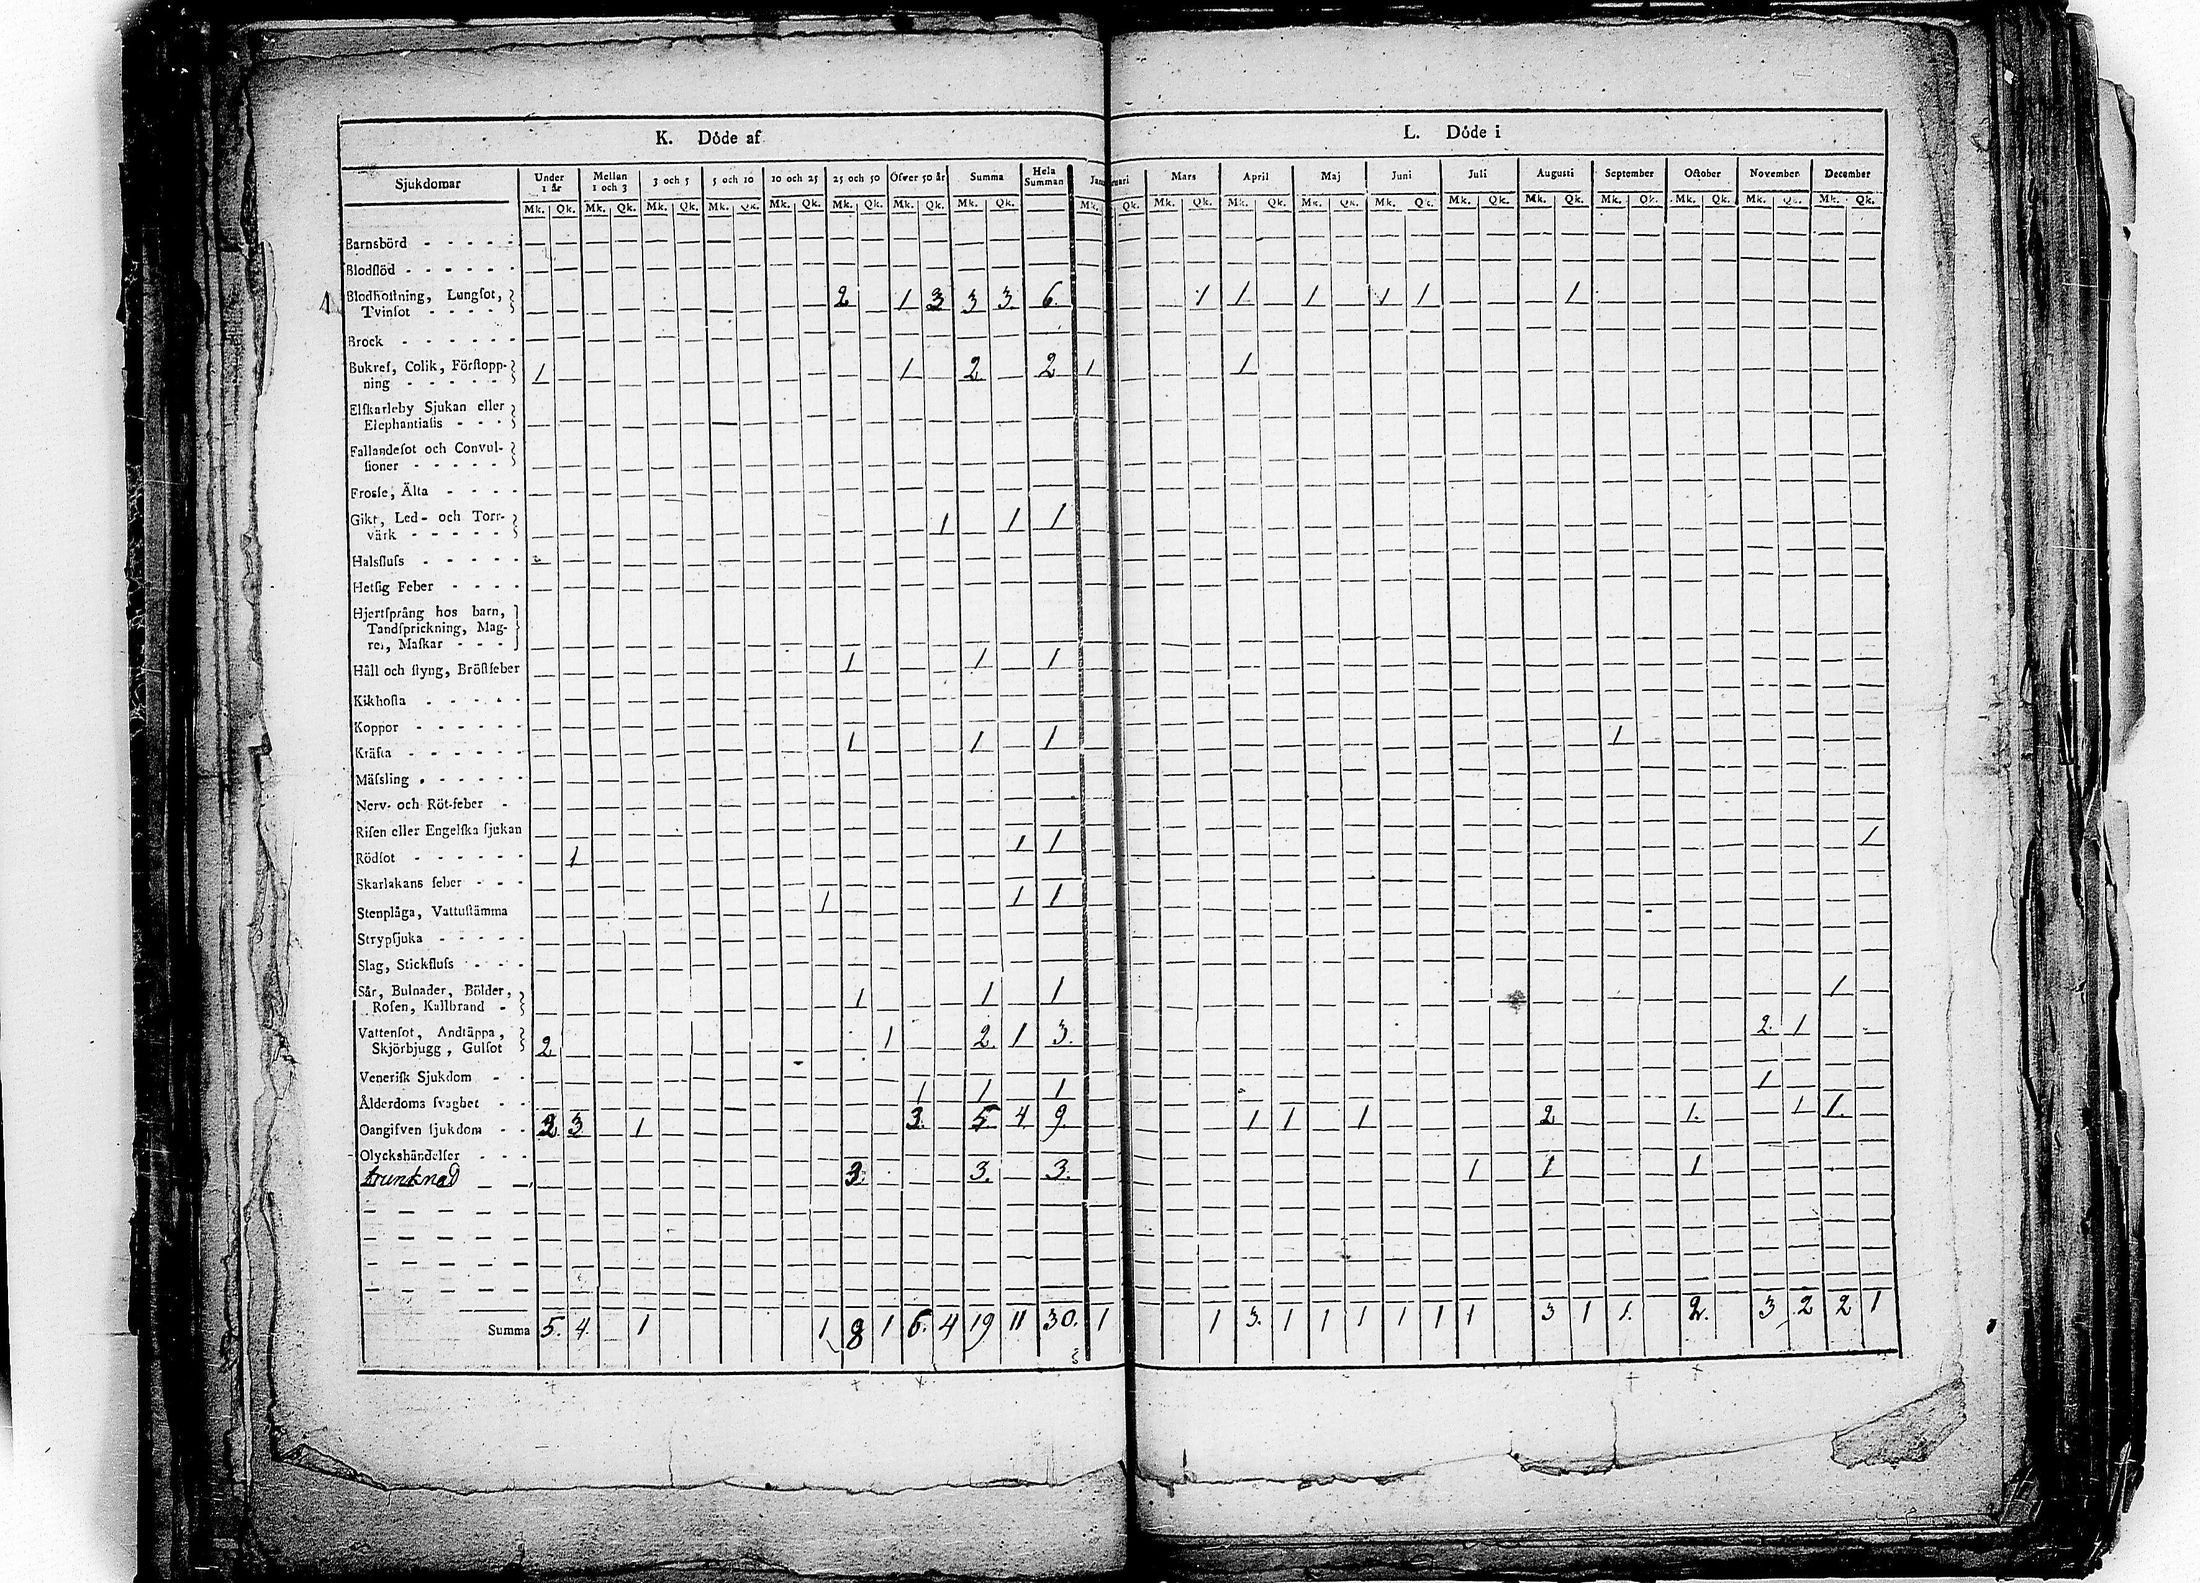 K. Döde af
L. Döde i
Sjukdomar Under 1 år Mellan 1 och 3 3 och 5 5 och 10 10 och 25 25 och 50 Öfver 50 år Summa Hela Summan Mars April Maj Juni Juli Augusti September October November December
Mk. Qk. Mk. Qk. Mk. Qk. Mk. Qk. Mk. Qk. Mk. Qk. Mk. Qk. Mk. Qk. Mk. Qk. Mk. Qk. Mk. Qk. Mk. Qk. Mk. Qk. Mk. Qk. Mk. Qk. Mk. Qk. Mk. Qk. Mk. Qk. Mk. Qk.
Barnsbörd
Blodflöd
Blodhostning, Lungsot,
Tvinsot 2 1 3 3 3 6 1 1 1 1 1 1
Brock
Bukref, Colik, Förstopp-
ning 1 1 2 2 1 1
Elfkarleby Sjukan eller
Elephantiasis
Fallandesot och Convul-
sioner
Frosse, Älta
Gikt, Led- och Torr-
värk 1 1 1
Halsfluss
Hetsig Feber
Hjertsprång hos barn,
Tandsprickning, Mag-
rei, Maskar
Håll och styng, Bröstfeber 1 1 1
Kikhosta
Koppor
Kräfta 1 1 1 1
Mässling
Nerv- och Röt-feber
Risen eller Engelska sjukan
Rödsot 1 1 1 1
Skarlakans feber
Stenplåga, Vattustämma 1 1 1
Strypsjuka
Slag, Stickfluss
Sår, Bulnader, Bölder,
Rosen, Kallbrand 1 1 1 1
Vattensot, Andtäppa,
Skjörbjugg, Gulsot 2 1 2 1 3 2 1
Venerisk Sjukdom
Ålderdoms svaghet 1 1 1 1
Oangifven sjukdom 2 3 1 3 5 4 9 1 1 1 2 1 1 1
Olyckshändelser
drunknad 3 3 3 1 1 1
Summa 5 4 1 1 8 1 6 4 19 11 30 1 1 3 1 1 1 1 1 1 3 1 1 2 3 2 2 1